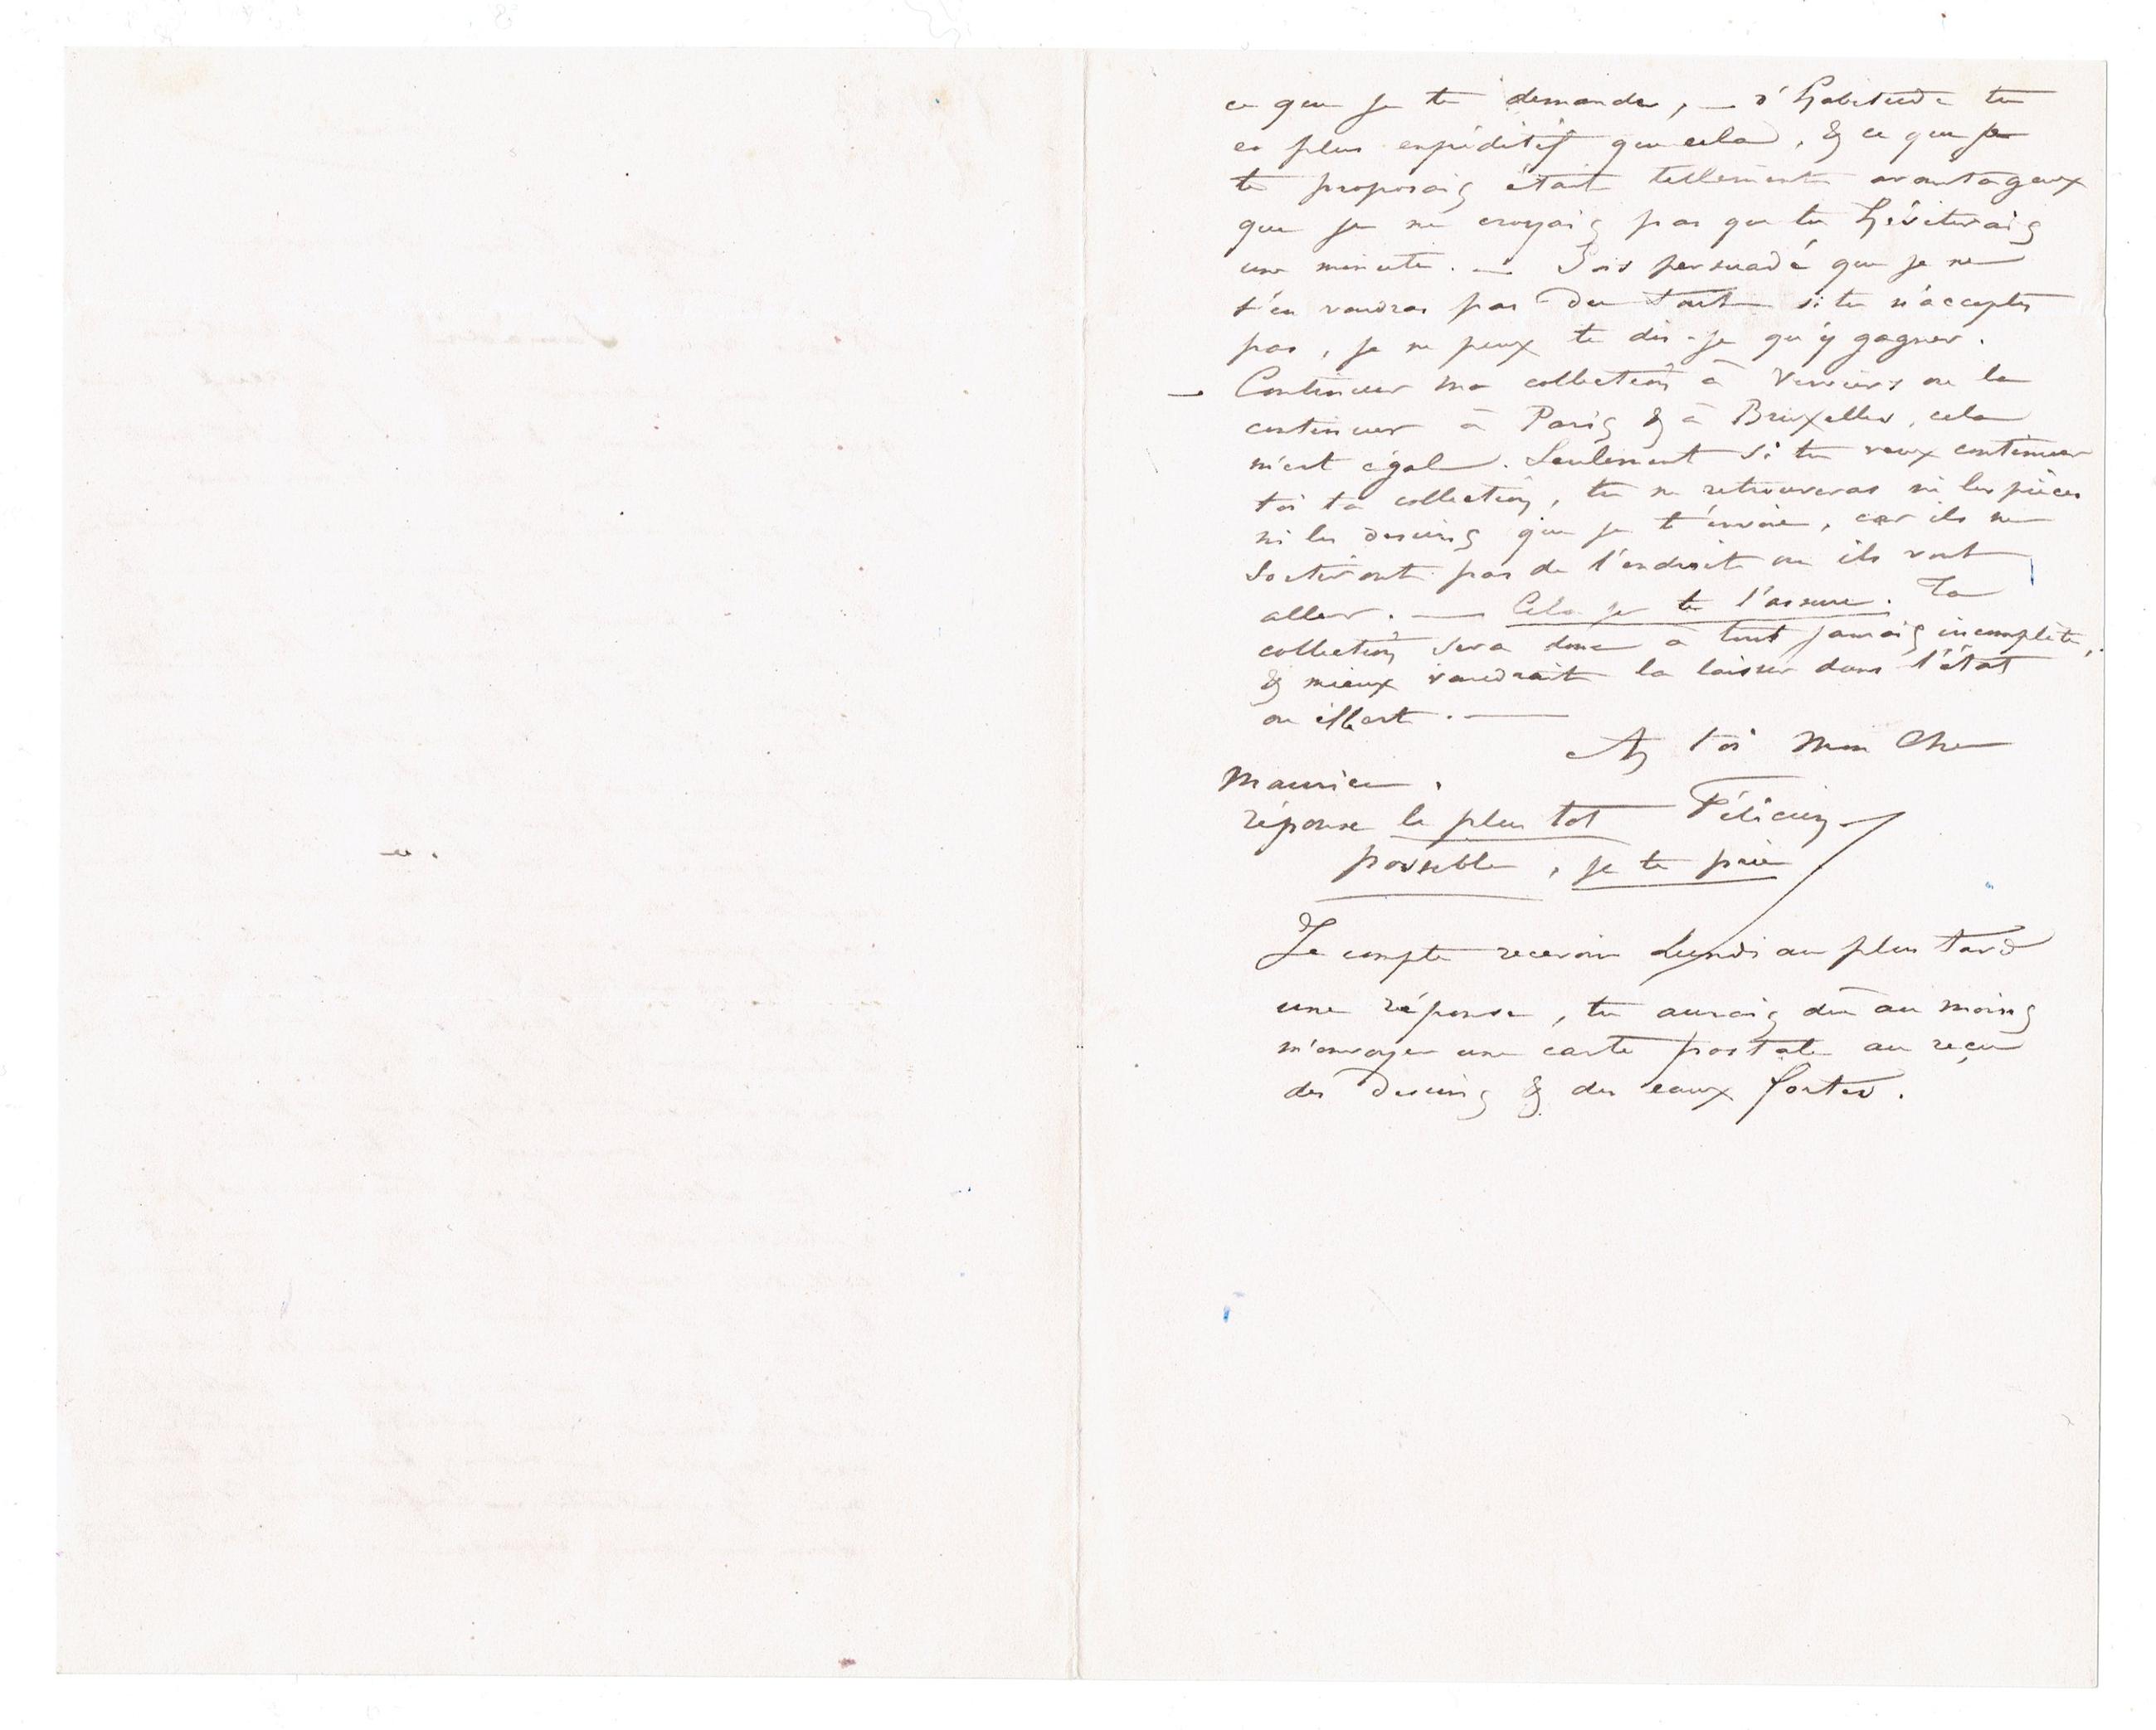 ce que je te demande, — d'habitude tu
es plus expéditif que cela, & ce que je
te proposais était tellement avantageux
que je ne croyais pas que tu hésiterais
une minute. — Sois persuadé que je ne
t'en voudrai pas du tout si tu n'acceptes
pas, je ne peux te dis-je qu'y gagner.
— Continuer ma collection à Verviers ou la
continuer à Paris & à Bruxelles, cela
m'est égal. Seulement si tu veux continuer
toi ta collection, tu ne retrouveras ni les pièces
ni les dessins que je t'envoie, car ils ne
sortiront pas de l'endroit ou ils vont
aller. — Cela je te l'assure. Ta
collection sera donc à tout jamais incomplète,
& mieux vaudrait la laisser dans l'état
ou elle est. —
A toi mon cher
Maurice.
réponse le plus tot Félicien
possible, je te prie
Je compte recevoir Lundi au plus tard
une réponse, tu aurais dû au moins
m'envoyer une carte postale au reçu
des dessins & des eaux fortes.